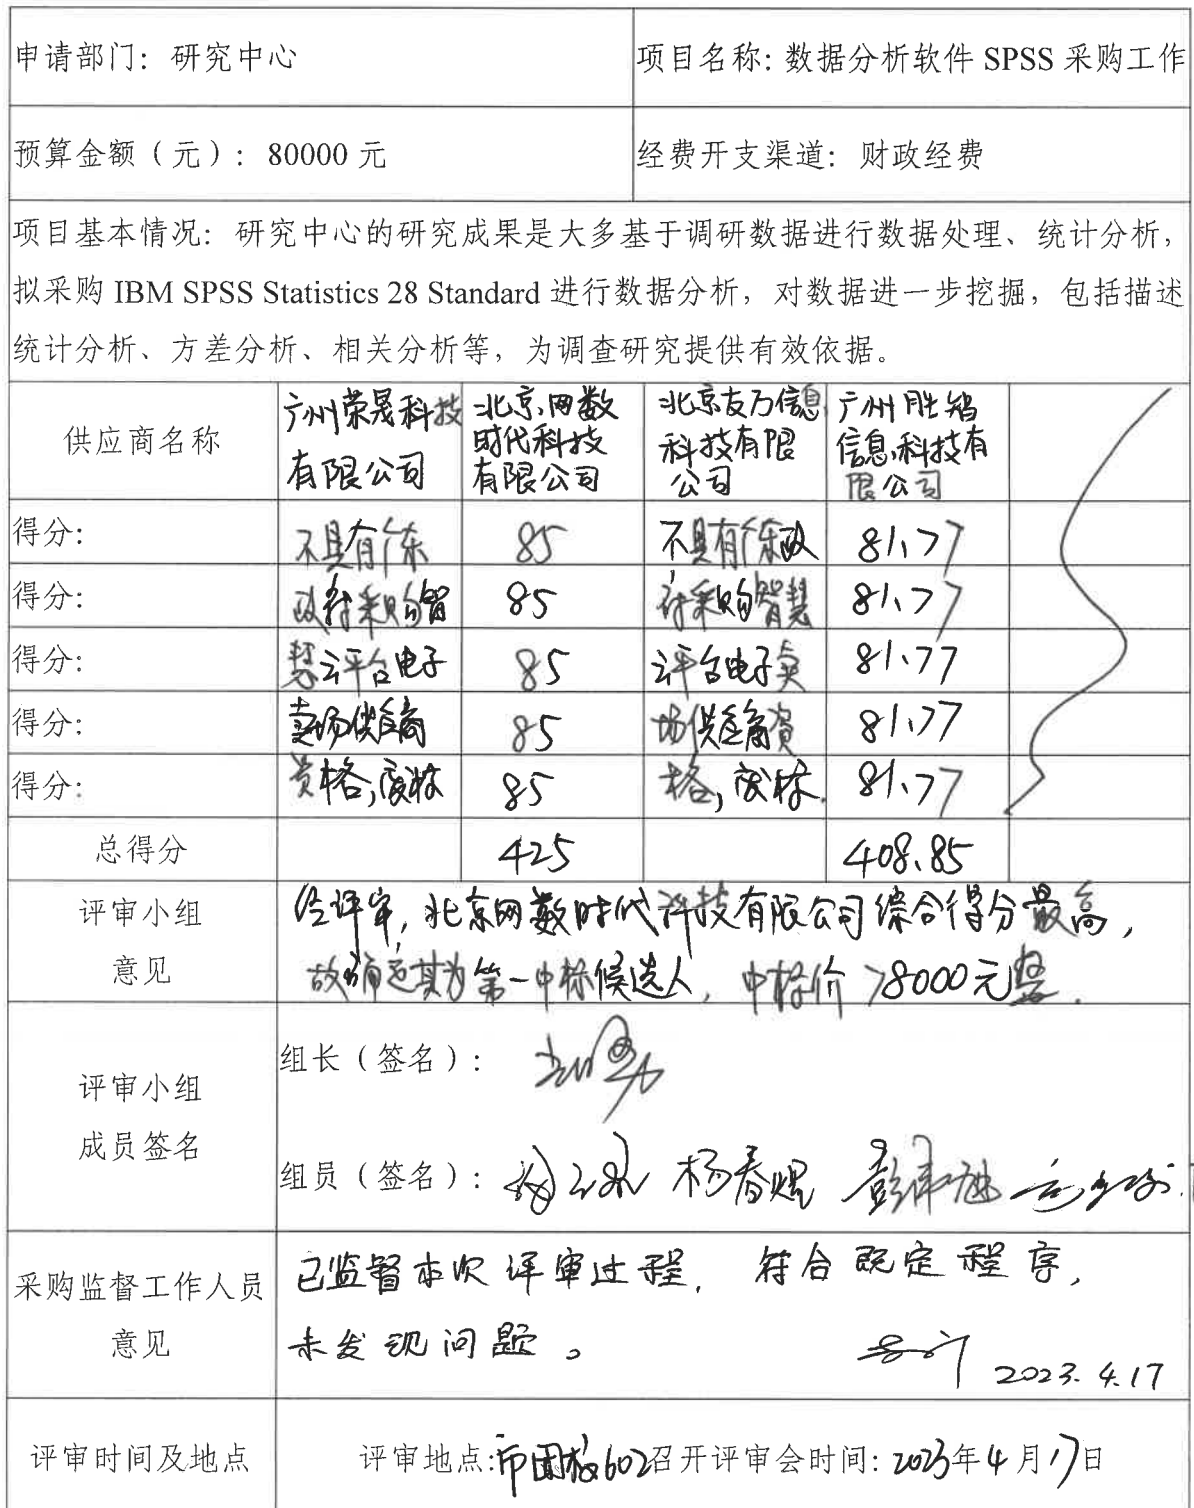 申请部门：研究中心
项目名称：数据分析软件 SPSS 采购工作
预算金额（元）：80000 元
经费开支渠道：财政经费
项目基本情况：研究中心的研究成果是大多基于调研数据进行数据处理、统计分析，
拟采购 IBM SPSS Statistics 28 Standard 进行数据分析，对数据进一步挖掘，包括描述
统计分析、方差分析、相关分析等，为调查研究提供有效依据。
供应商名称
广州荣晟科技
有限公司
北京网数
时代科技
有限公司
北京友万信息
科技有限
公司
广州胜铭
信息科技有
限公司
得分：
不具有广东
85
不具有广东政
81.77
得分：
政府采购智
85
府采购智慧
81.77
得分：
慧云平台电子
85
云平台电子卖
81.77
得分：
卖场供应商
85
场供应商资
81.77
得分：
资格，废标
85
格，废标.
81.77
总得分
425
408.85
评审小组
意见
经评审，北京网数时代科技有限公司综合得分最高，
故确定其为第一中标候选人，中标价78000元整.
评审小组
成员签名
组长（签名）：
组员（签名）： 杨春焜
采购监督工作人员
意见
已监督本次评审过程，符合既定程序，
未发现问题。
2023.4.17
评审时间及地点
评审地点:市团校602召开评审会时间：2023年4月17日